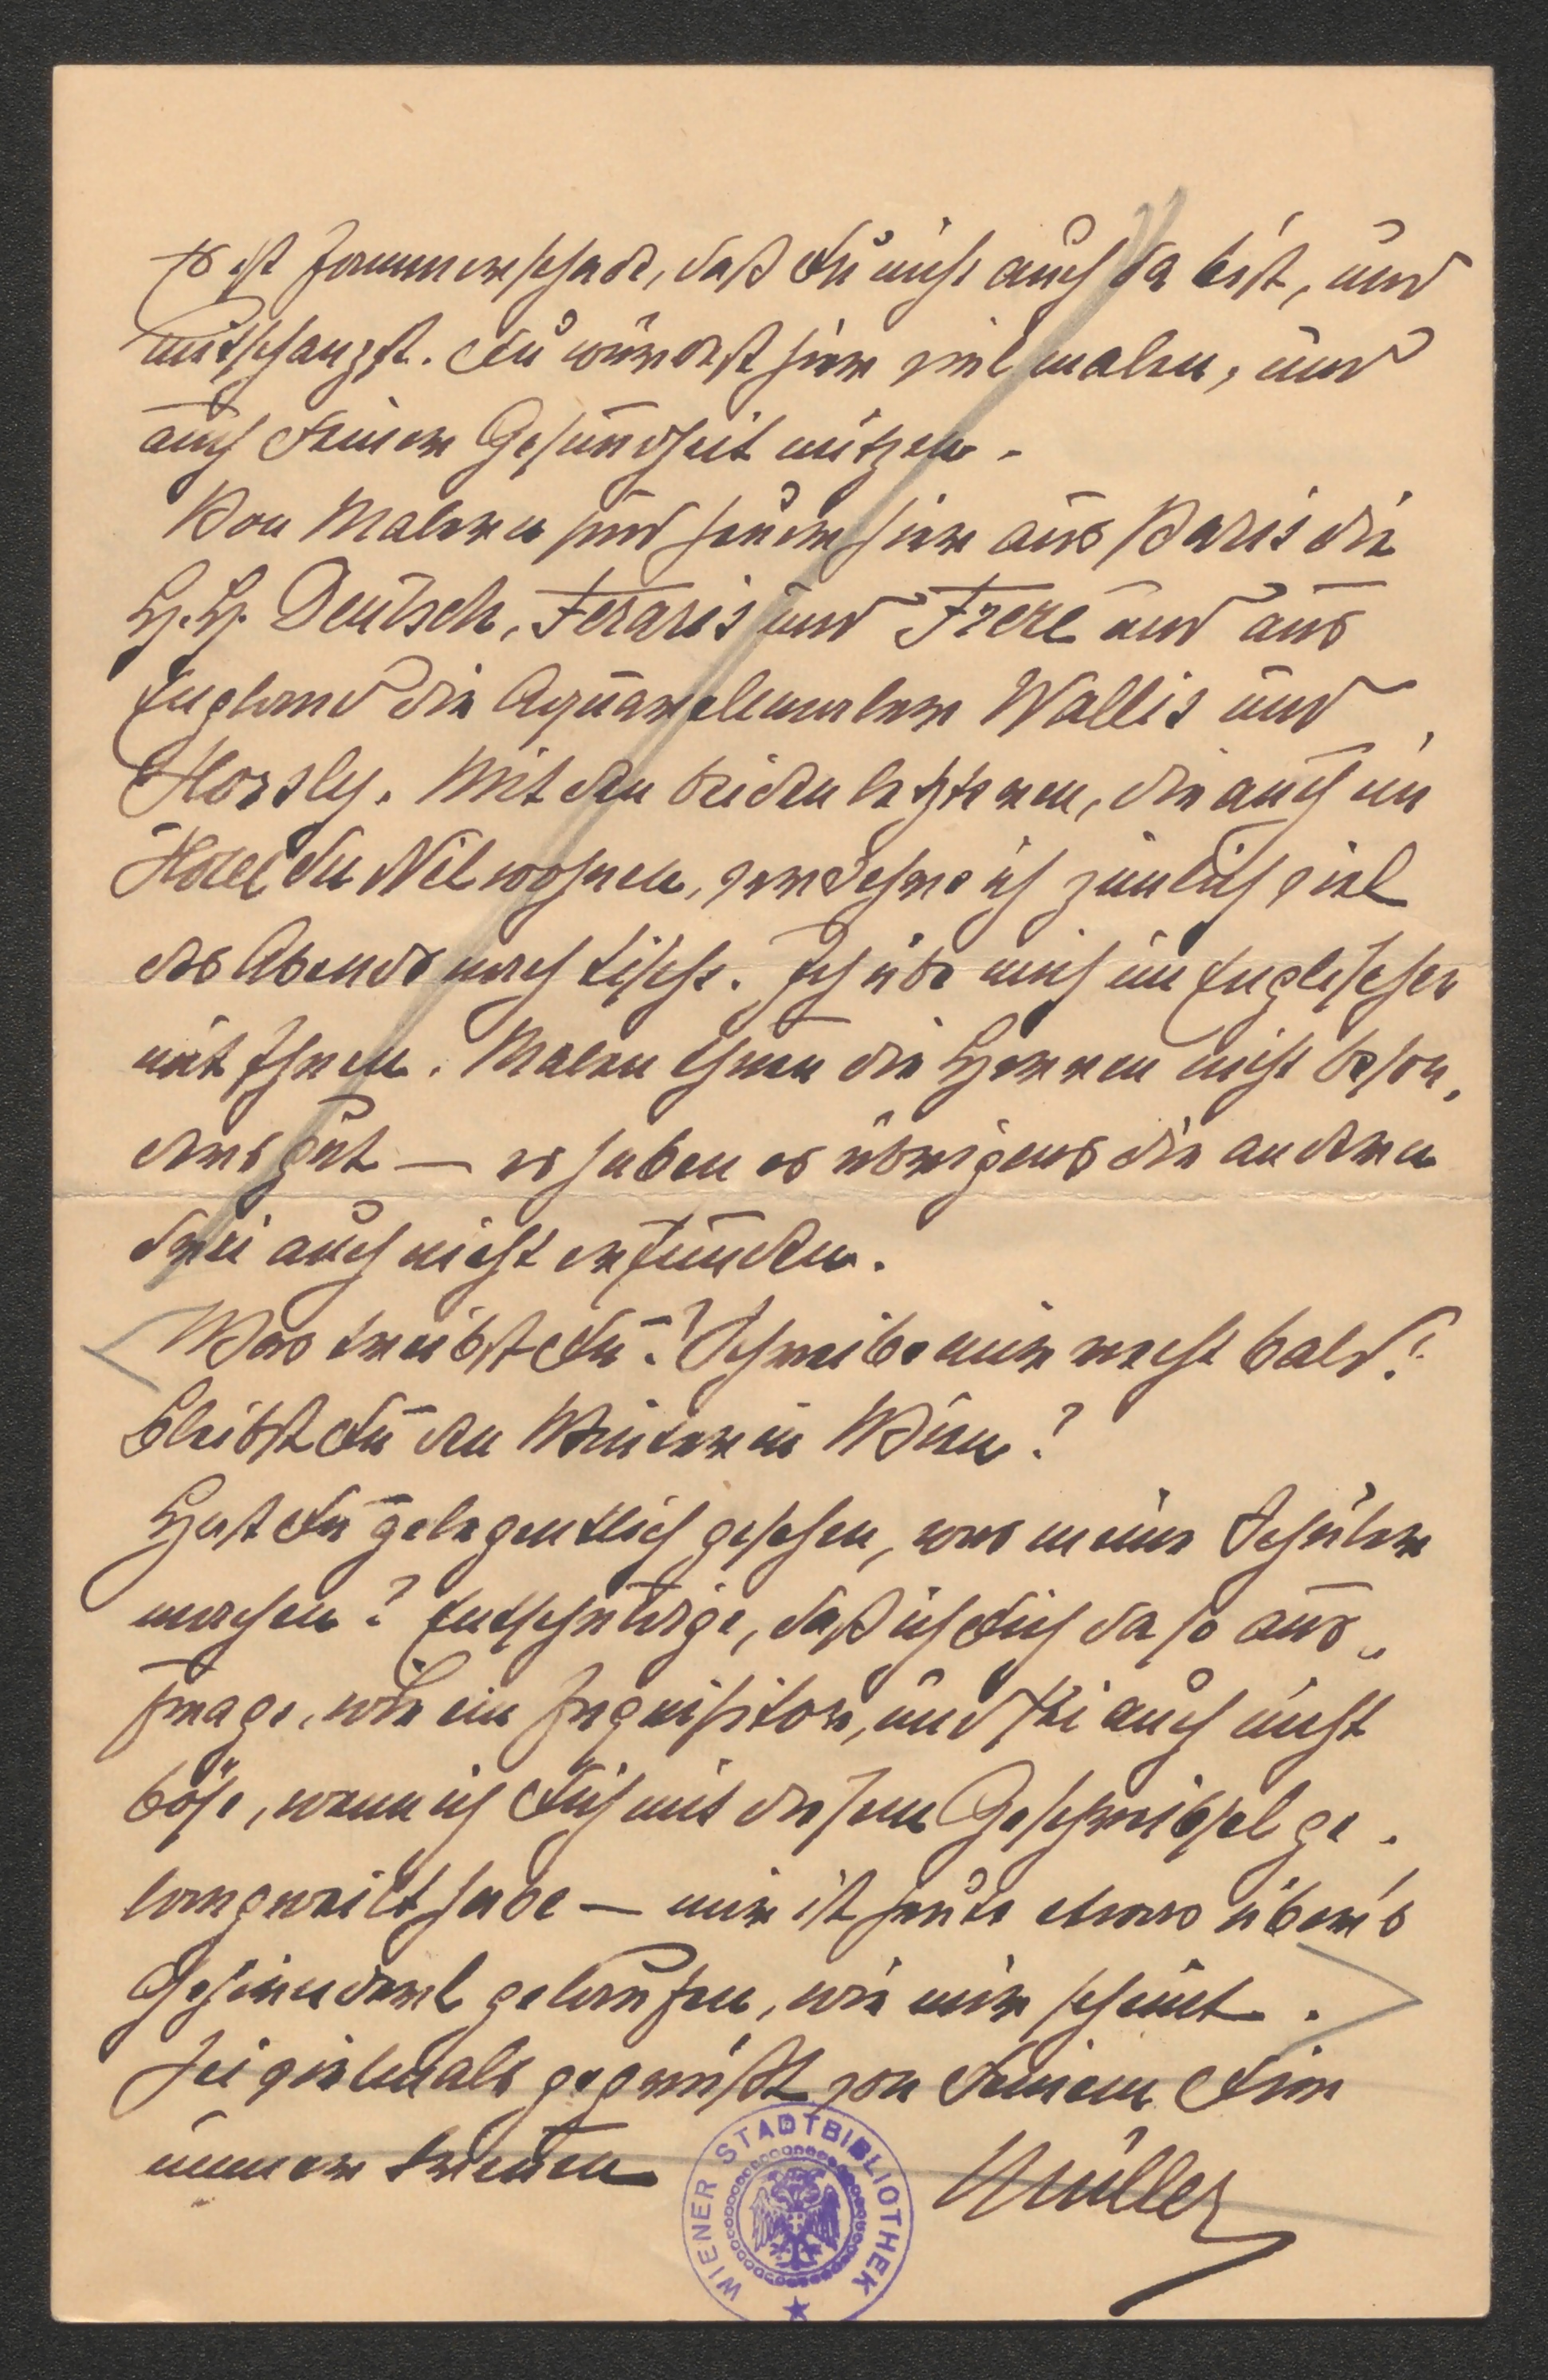 Es ist jammerschade, daß Du nicht auch da bist, und
mitschanzst. Du würdest hier viel malen, und
auch Deiner Gesundheit nützen.
Von Malern sind heuer hier aus Paris die
H.H. Deutsch, Feraris und Frere und aus
England die Aquarellmaler Wallis und
Horsly. Mit den beiden letzteren, die auch im
Hotel du Nil wohnen, verkehre ich ziemlich viel
des Abends nach Tische. Ich übe mich im Englischen
mit Ihnen. Malen thun die Herren nicht beson-
ders gut — es haben es übrigens die anderen
drei auch nicht erfunden.
Was treibst Du? Schreibe mir recht bald!
Bleibst Du den Winter in Wien?
Hast Du gelegentlich gesehen, was meine Schüler
machen? Entschuldige, daß ich Dich da so aus-
frage, wie ein Inquisitor, und sei auch nicht
böse, wenn ich Dich mit diesem Geschreibsel ge-
langweilt habe — mir ist heute etwas über's
gelaufen, wie mir scheint.
Sei vielmals gegrüßt von Deinem Dir
immer treuen
Müller
WIENER STADTBIBLIOTHEK